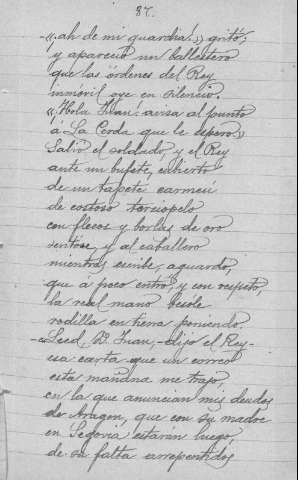 87.
-«¡ah de mi guardia!» gritó,
y apareció un ballestero
que las órdenes del Rey
inmóvil oye en silencio.
«¡Hola Juan! avisa al punto
á La Cerda que le espero.»
Salió el soldado, y el Rey
ante un bufete, cubierto
de un tapete carmesí
de costoso terciopelo
con flecos y borlas de oro
sentose, y al caballero
mientras escribe, aguardó,
que á poco entró, y con respeto,
la real mano besole
rodilla en tierra poniendo.
-«Leed, D. Juan,- dijo el Rey-
esa carta que un correo
esta mañana me trajo,
en la que anuncian mis deudos
de Aragon, que con su madre
en Segovia estarán luego,
de su falta arrepentidos